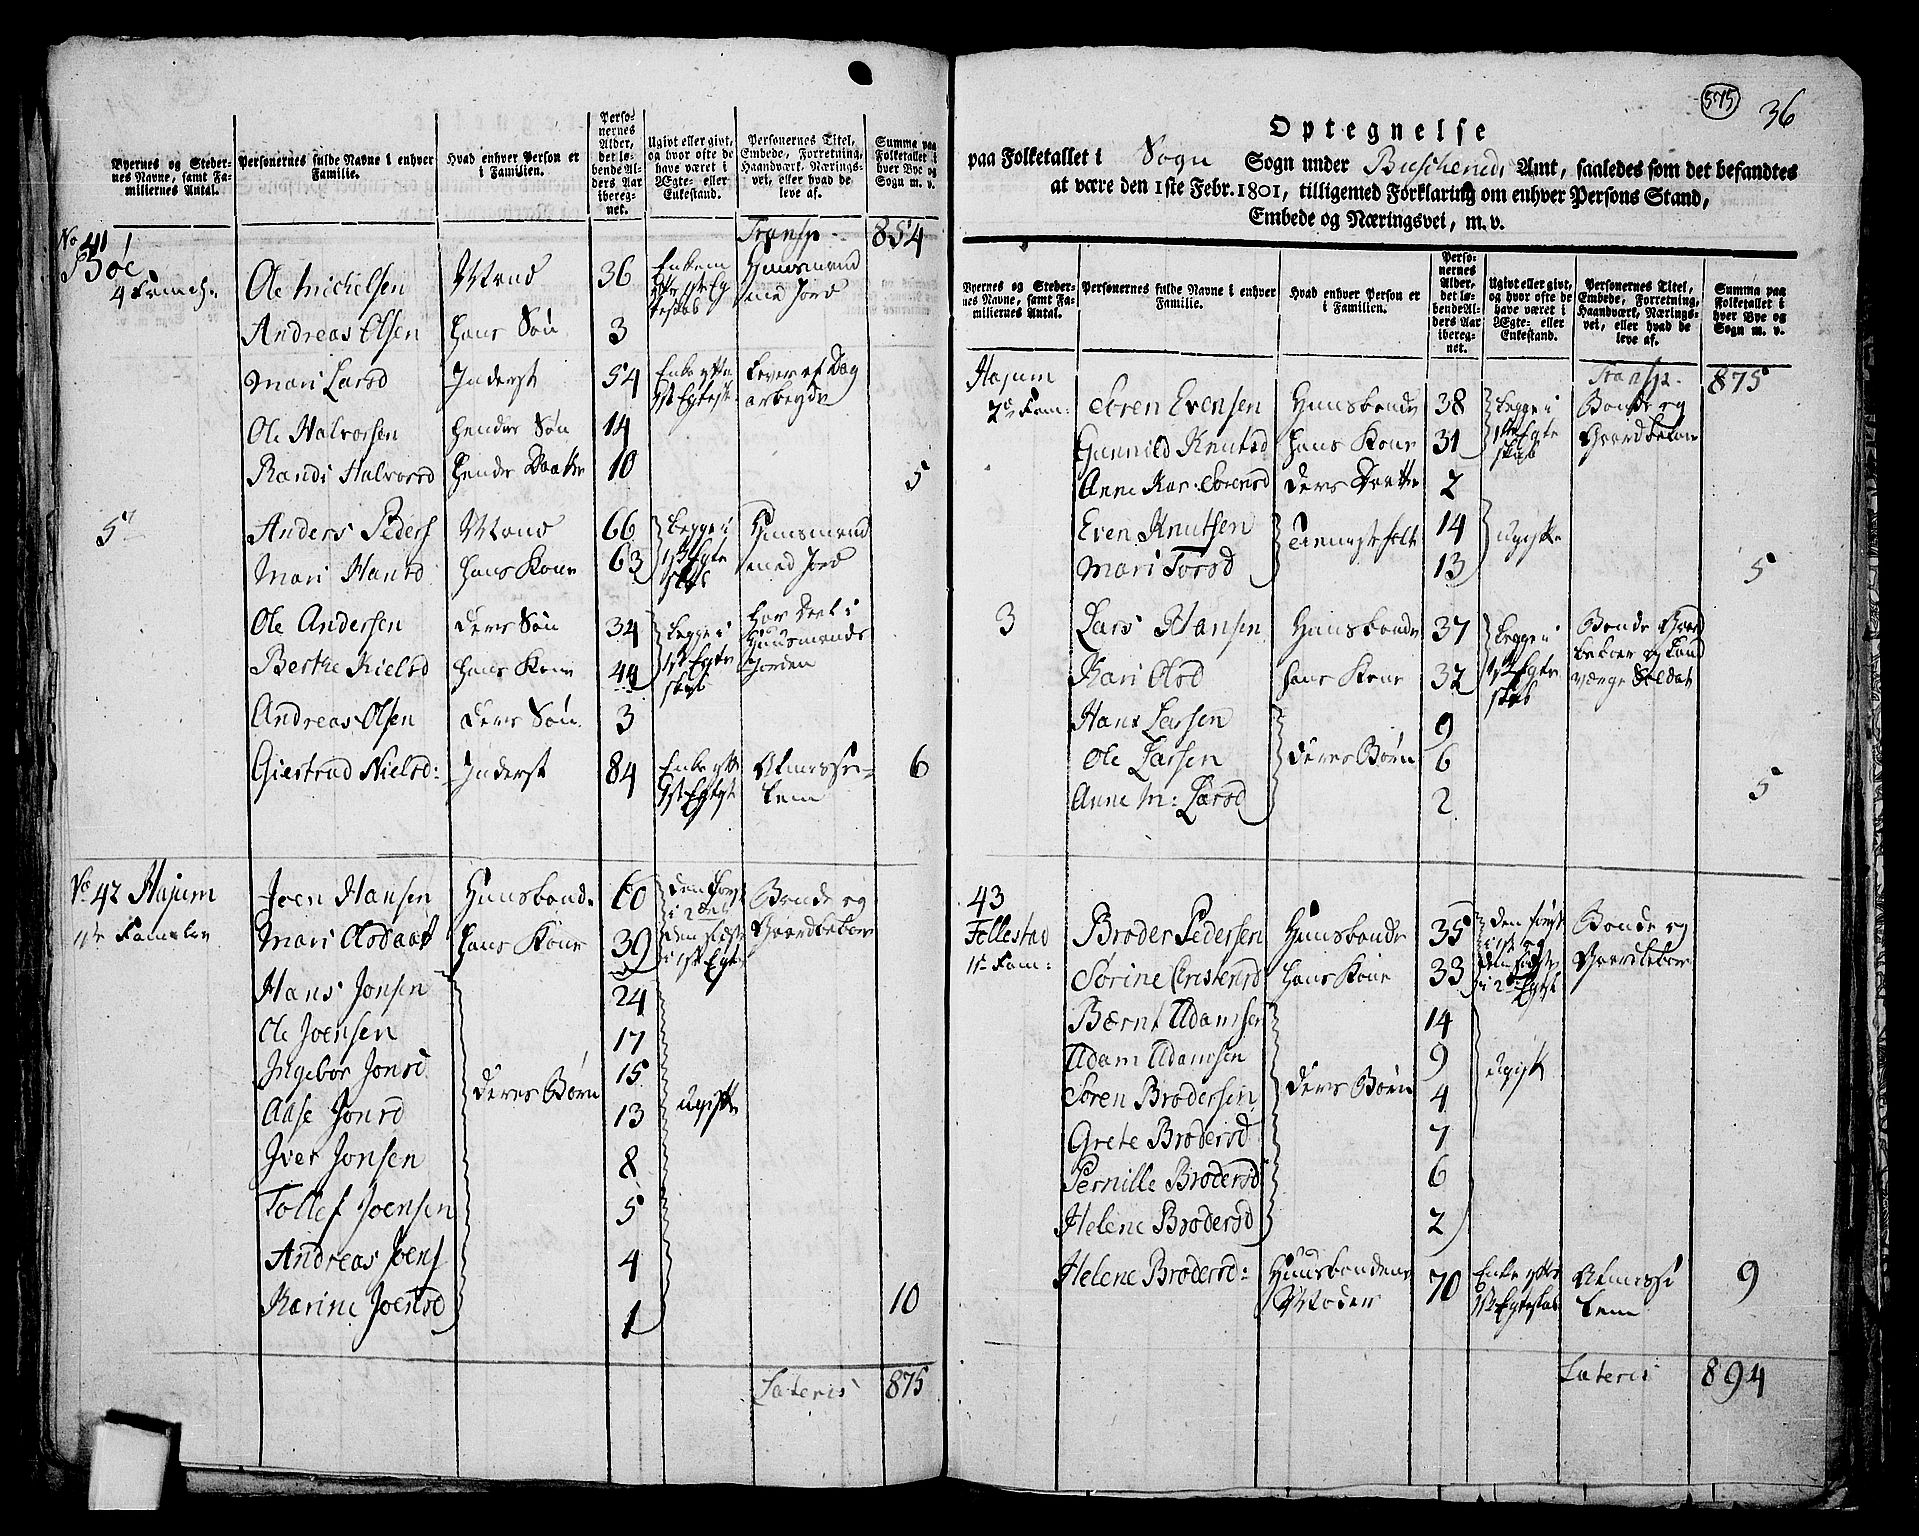 Byernes og Steder-
nes Navne, samt Fa-
miliernes Antal.
Personernes fulde Navne i enhver
Familie.
Hvad enhver Person er
i Familien.
Perso-
nernes
Alder,
det lø-
bende Al-
ders Aar
ibereg-
net.
Ugivt eller givt,
og hvor ofte de
have været i
Ægte- eller
Enkestand.
Personernes Titel,
Embede, Forretning,
Haandværk, Nærings-
vei, eller hvad de
leve af.
Summa paa
Folketallet i
hver Bye og
Sogn m. v.
Transp. 854
No 41
Bøe
4 Famel:
Ole Michelsen Mand 36 Enkem efter 1ste Egteskab Huusmand med Jord
Andreas Olsen hans Søn 3
Mari Larsd Inderst 54 Enke efter 1st Egtesk lever af Dag arbeyde
Ole Halvorsen hendes Søn 14
Randi Halvorsd hendes Daatter 10 5
5te Anders Peders Mand 66 begge i 1ste Egteskab Huusmand med Jord
Mari Hansd hans Kone 63
Ole Andersen deres Søn 34 begge i 1st Egteskab har Deel i Huusmands Jorden
Berthe Nielsd hans Kone 44
Andreas Olsen deres Søn. 3
Giertrud Nielsd: Inderst 84 Enke efter 1st Egtesk Almisse-lem 6
No 42 Hajum
1te Famelie
Joen Hansen Huusbond. 60 Bonde og Gaardbeboer
Mari Olsdaat hans Kone 39
Hans Jonsen 24
Ole Joensen 17
Ingebor Jonsd. 15
deres Børn ugifte
Aase Jonsd 13
Iver Jonsen 8
Tollef Joensen 5
Andreas Joens 4
Karine Joensd 1 10
Lateris 875
575 36
Optegnelse
paa Folketallet i Sogn Sogn under Buscheruds Amt, saaledes som det befandtes
at være den 1ste Febr. 1801, tilligemed Forklaring om enhver Persons Stand,
Embede og Næringsvei, m. v.
Byernes og Steder-
nes Navne, samt Fa-
miliernes Antal.
Personernes fulde Navne i enhver
Familie.
Hvad enhver Person er
i Familien.
Perso-
nernes
Alder,
det lø-
bende Al-
ders Aar
ibereg-
net.
Ugivt eller givt,
og hvor ofte de
have været i
Ægte- eller
Enkestand.
Personernes Titel,
Embede, Forretning,
Haandværk, Nærings-
vei, eller hvad de
leve af.
Summa paa
Folketallet i
hver Bye og
Sogn m. v.
Transp. 875
Hajum
2de Fam:
Søren Evensen Huusbonde 38 begge i 1ste Egteskab Bonde og Gaardbeboer
Gunnild Knutsd hans Kone 31
Anne Kar: Sørensd deres Datter 2
Even Knutsen Tienestefolk 14 ugifte
Mari Torsd 13 5
3 Lars Hansen Huusbonde 37 begge i 1st Egteskab Bonde Gaardbeboer og Landværge Soldat
Kari Olsd hans Kone 32
Hans Larsen 9
Ole Larsen deres Børn 6
Anne M: Larsd 2 5
43
Follestad
1te Fam:
Broder Pedersen Huusbonde 35 den første i 1st og den sidste i 2det Egtesk Bonde og Gaardbeboer
Sørine Christensd hans Kone 33
Bærnt Adamsen 14
Adam Adamsen 9 ugift
Søren Brodersen deres Børn 4
Grete Brodersd 7
Pernille Brodersd 6
Helene Brodersd 2
Helene Brodersd: Huusbondens Moder 70 Enke efter 1st Egteskab Almisselem 9
Lateris 894